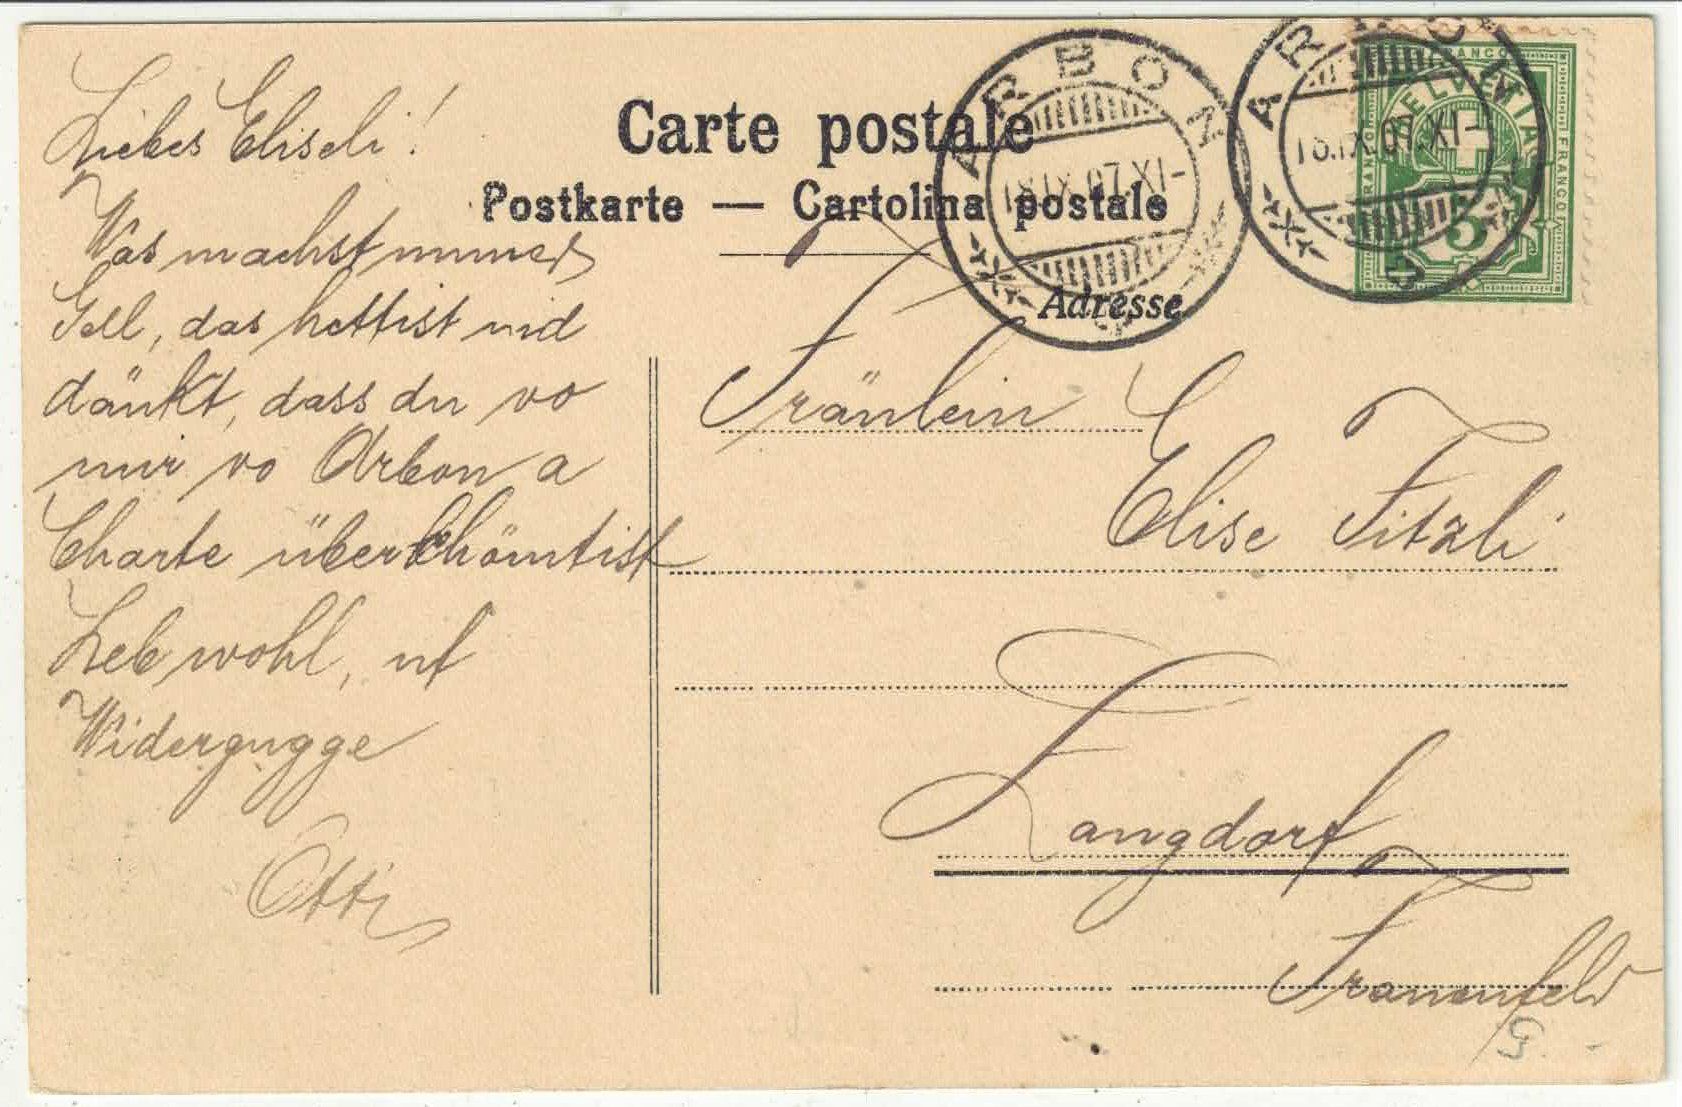 Carte postale
Postkarte — Cartolina postale
Adresse
ARBON
18.IX.07.XI-
ARBON
18.IX.07.XI-
HELVETIA
FRANCO
5
Liebes Eliseli!
Was machst immer
Gell, das hettist nid
dänkt, dass du vo
mir vo Arbon a
Charte überchömtist
Leb wohl, uf
Widergugge
Otti
Fräulein
Elise Fitzli
Langdorf,
Frauenfeld